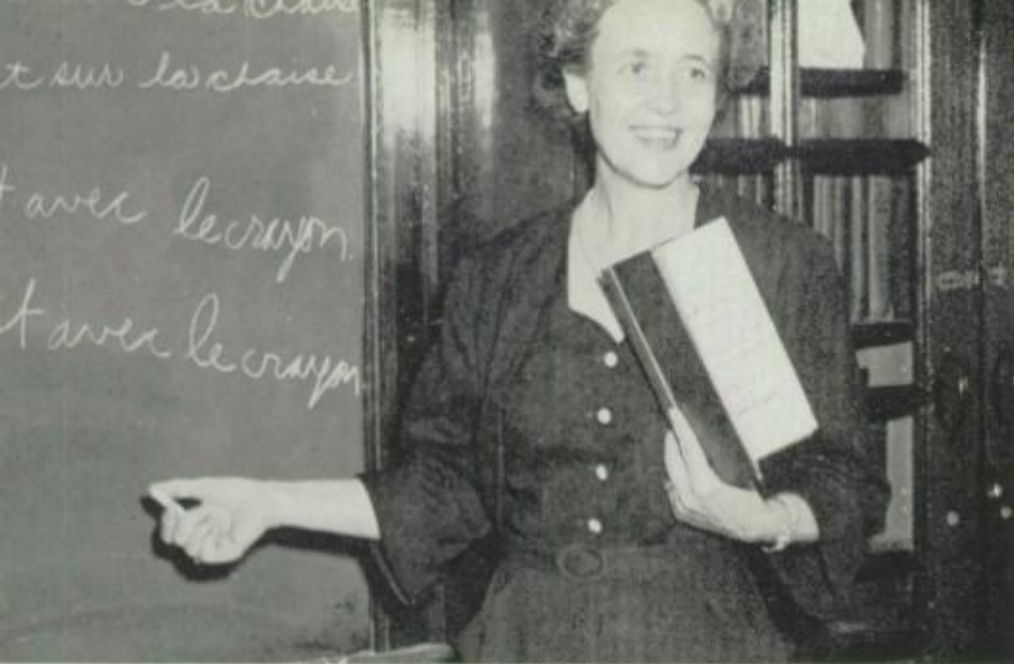 la chaise
t sur la chaise
t avec le crayon.
t avec le crayon